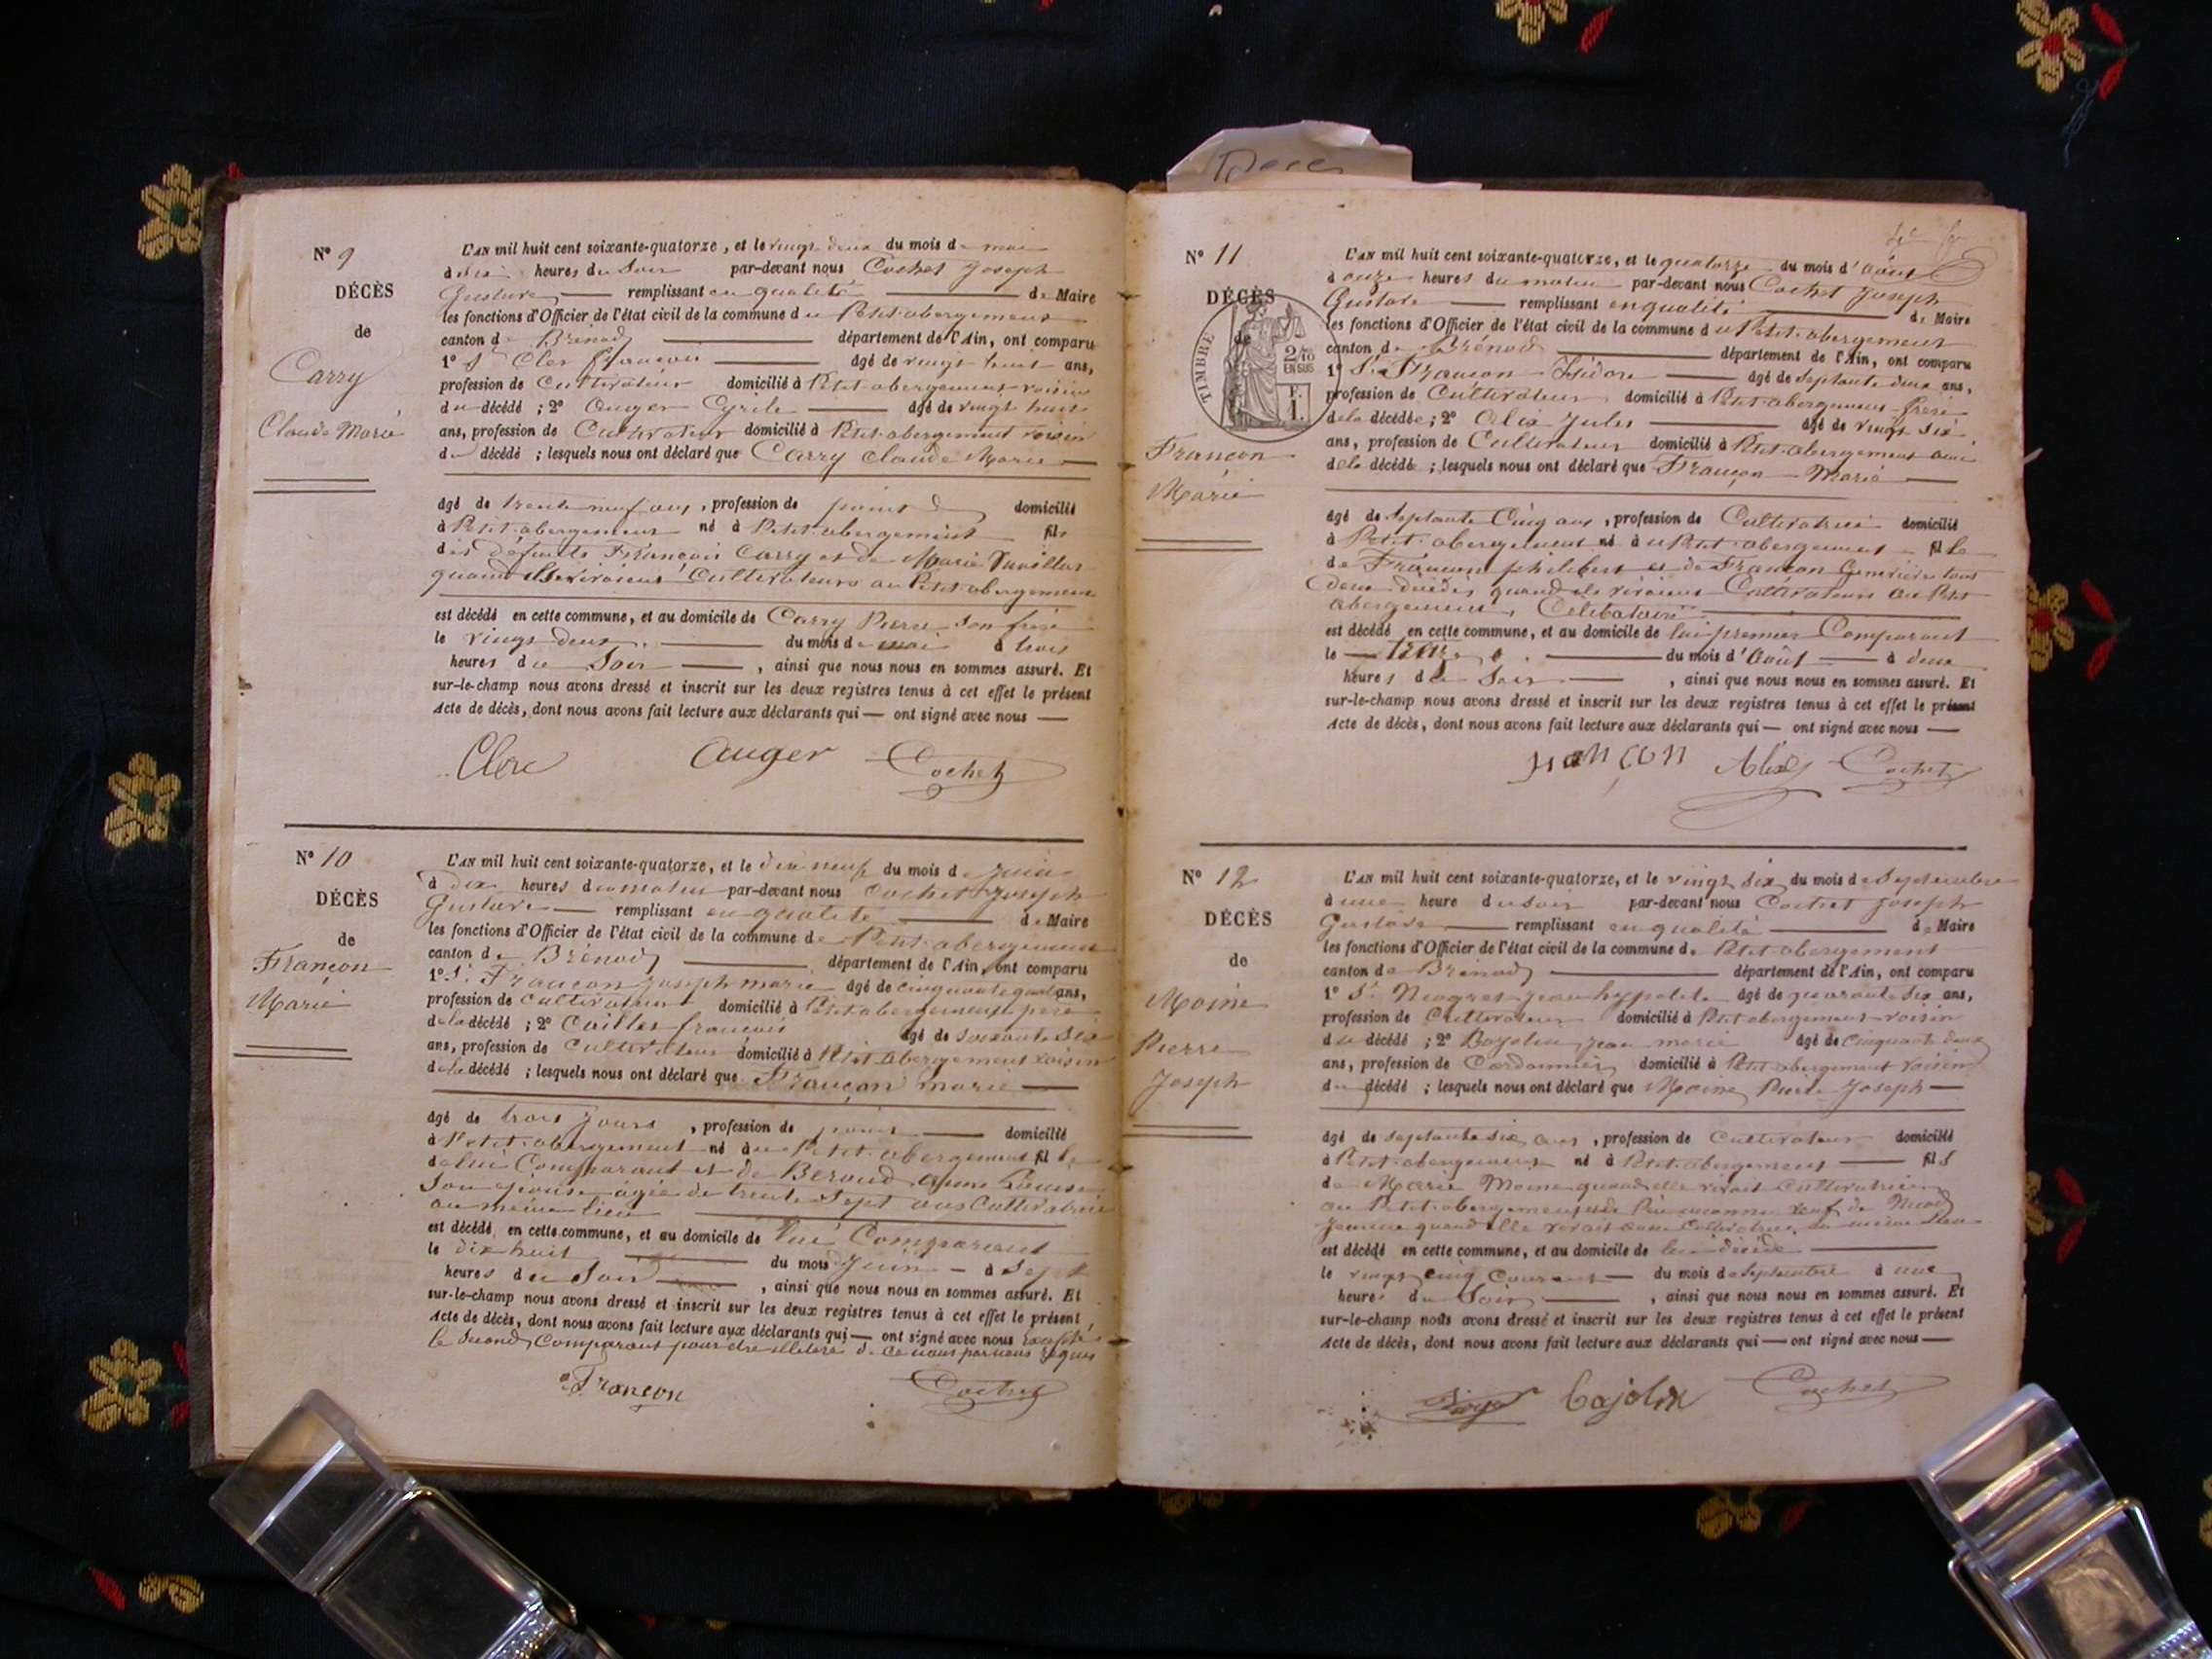 Deces
N° 9
DÉCÈS
de
Carry
Claude Marie
L'AN mil huit cent soixante-quatorze, et le vingt deux du mois de mai
à six heures du Soir par-devant nous Cochet Joseph
Gustave remplissant en qualité de Maire
les fonctions d'Officier de l'état civil de la commune du Petit-abergement
canton de Brénod département de l'Ain, ont comparu
1° Sr Clerc François âgé de vingt huit ans,
profession de Cultivateur domicilié à Petit abergement voisin
du décédé ; 2° Auger Cyrile âgé de vingt huit
ans, profession de Cultivateur domicilié à Petit-abergement voisin
du décédé ; lesquels nous ont déclaré que Carry Claude Marie
âgé de trente neuf ans, profession de point domicilié
à Petit-abergement né à Petit-abergement fils
des défunts François Carry et de Marie
quand ils vivaient Cultivateurs au Petit-abergement
est décédé en cette commune, et au domicile de Carry Pierre son frère
le vingt deux du mois de mai à trois
heures du Soir, ainsi que nous nous en sommes assuré. Et
sur-le-champ nous avons dressé et inscrit sur les deux registres tenus à cet effet le présent
Acte de décès, dont nous avons fait lecture aux déclarants qui — ont signé avec nous —
Clerc Auger Cochet
N° 10
DÉCÈS
de
Françon
Marie
L'AN mil huit cent soixante-quatorze, et le dix neuf du mois de Juin
à dix heures du matin par-devant nous Cochet Joseph
Gustave remplissant en qualité de Maire
les fonctions d'Officier de l'état civil de la commune de Petit-abergement
canton de Brénod département de l'Ain, ont comparu
1° Sr Françon Joseph marie âgé de cinquante quatre ans,
profession de Cultivateur domicilié à Petit abergement père
de la décédé ; 2° François âgé de soixante six
ans, profession de Cultivateur domicilié à Petit abergement voisin
de la décédé ; lesquels nous ont déclaré que Françon marie
âgé de trois jours, profession de point domicilié
à Petit-abergement né au Petit abergement fille
de lui Comparant et de Beroud Anne Louise
Son épouse âgée de trente Sept ans Cultivatrice
au même lieu
est décédé en cette commune, et au domicile de lui Comparant
le dix huit du mois Juin à Sept
heures du Soir, ainsi que nous nous en sommes assuré. Et
sur-le-champ nous avons dressé et inscrit sur les deux registres tenus à cet effet le présent
Acte de décès, dont nous avons fait lecture aux déclarants qui — ont signé avec nous Excepté
le second Comparant pour être illétéré de ce nous par nous requis
Françon Cochet
N° 11
DÉCÈS
de
TIMBRE
2/10
EN SUS
F.
1.
Françon
Marie
L'AN mil huit cent soixante-quatorze, et le quatorze du mois d'Août
à onze heures du matin par-devant nous Cochet Joseph
Gustave remplissant en qualité de Maire
les fonctions d'Officier de l'état civil de la commune du Petit-abergement
canton de Brénod département de l'Ain, ont comparu
1° Sr Françon Isidore âgé de Septante deux ans,
profession de Cultivateur domicilié à Petit-abergement frère
de la décédée ; 2° Alix Jules âgé de vingt six
ans, profession de Cultivateur domicilié à Petit-abergement ami
de la décédée ; lesquels nous ont déclaré que Françon Marie
âgé de Septante Cinq ans, profession de Cultivatrice domicilié
à Petit-abergement né au Petit abergement fille
de Françon philibert et de Françon Geneviève tous
deux décédés quand ils vivaient Cultivateurs au Petit
abergement, Célibataire
est décédé en cette commune, et au domicile de lui premier Comparant
le treize du mois d'Août à deux
heures du Soir, ainsi que nous nous en sommes assuré. Et
sur-le-champ nous avons dressé et inscrit sur les deux registres tenus à cet effet le présent
Acte de décès, dont nous avons fait lecture aux déclarants qui — ont signé avec nous —
françon Alix Cochet
N° 12
DÉCÈS
de
Moine
Pierre
Joseph
L'AN mil huit cent soixante-quatorze, et le vingt six du mois de Septembre
à une heure du soir par-devant nous Cochet Joseph
Gustave remplissant en qualité de Maire
les fonctions d'Officier de l'état civil de la commune de Petit-abergement
canton de Brénod département de l'Ain, ont comparu
1° Sr Jean hyppolite âgé de quarante six ans,
profession de Cultivateur domicilié à Petit abergement voisin
du décédé ; 2° Bajolin Jean marie âgé de Cinquante deux
ans, profession de Cordonnier domicilié à Petit abergement voisin
du décédé ; lesquels nous ont déclaré que Moine Pierre Joseph
âgé de septante six ans, profession de Cultivateur domicilié
à Petit-abergement né à Petit-abergement fils
de Marie Moine quand elle vivait Cultivatrice
au Petit-abergement et de Père inconnu veuf de
quand elle vivait Cultivatrice au même lieu
est décédé en cette commune, et au domicile de lui décédé
le vingt cinq Courant du mois de Septembre à une
heure du Soir, ainsi que nous nous en sommes assuré. Et
sur-le-champ nous avons dressé et inscrit sur les deux registres tenus à cet effet le présent
Acte de décès, dont nous avons fait lecture aux déclarants qui — ont signé avec nous —
Bajolin Cochet